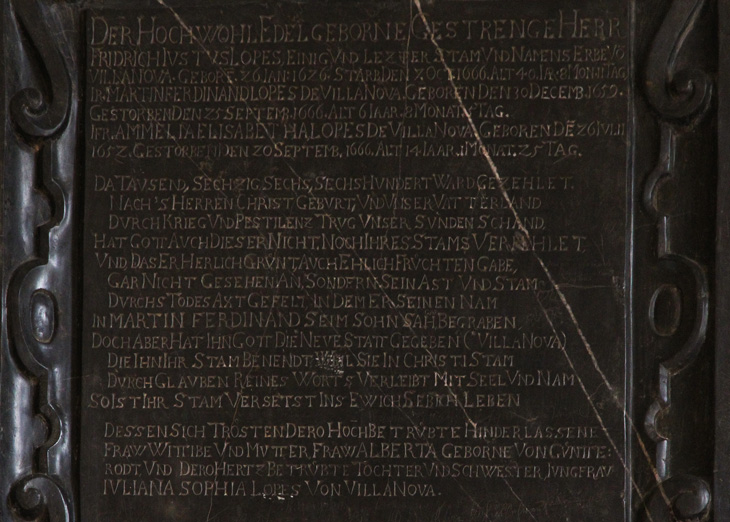 DER HOCHWOHLEDELGEBORNE GESTRENGE HERR
FRIDRICH IUSTUS LOPES, EINIG VND LEZTER STAM VND NAMENS ERBE
VILLANOVA. GEBORE. 26 IAN: 1626. STARB DEN OCT. 1666. ALT 40. IA: 8 MON TAG
MARTIN FERDINAND LOPES DE VILLANOVA. GEBOREN DEN 30 DECEMB. 1659.
GESTORBEN DEN 25 SEPTEMB. 1666. ALT 6 IAAR. 8 MONAT. TAG.
IFR. AMMELIA ELISABETHA LOPES DE VILLANOVA. GEBOREN DĒ 26 IULII
1652. GESTORBEN DEN 20 SEPTEMB. 1666. ALT 14 IAAR. 1 MONAT. 25 TAG.
DA TAUSEND, SECHZIG SECHS, SECHSHUNDERT WARD GEZEHLET.
NACH'S HERREN CHRIST GEBURT, UND VNSER VATTERLAND
DURCH KRIEG VND PESTILENZ TRUG VNSER SVNDEN SCHAND.
HAT GOTT AUCH DIESER NICHT, NOCH IHRES STAMS VERFEHLET
VND DAS ER HERLICH GRVNT, AUCH EHLICH FRUCHTEN GABE,
GAR NICHT GESEHEN AN, SONDERN SEIN AST VND STAM
DURCHS TODES AXT GEFELT INDEM ER SEINEN NAM
IN MARTIN FERDINAND SEIM SOHN SAH BEGRABEN.
DOCH ABER HAT IHN GOTT DIE NEVE STATT GEGEBEN (*VILLANOVA)
DIE IHN IHR STAM BENENDT WEIL SIE IN CHRISTI STAM
DURCH GLAUBEN REINES WORTS VERLEIBT MIT SEEL VND NAM
SO IST IHR STAM VERSETST INS EWICH LEBEN
DESSEN SICH TRÖSTEN DERO HOCHBETRÜBTE HINDERLASSENE
FRAW WITTIBE VND MVTTER FRAW ALBERTA GEBORNE VON GÜNTE:
RODT VND DERO HERTZBETRÜBTE TOCHTER VND SCHWESTER JUNGFRAV
IVLIANA SOPHIA LOPES VON VILLANOVA.